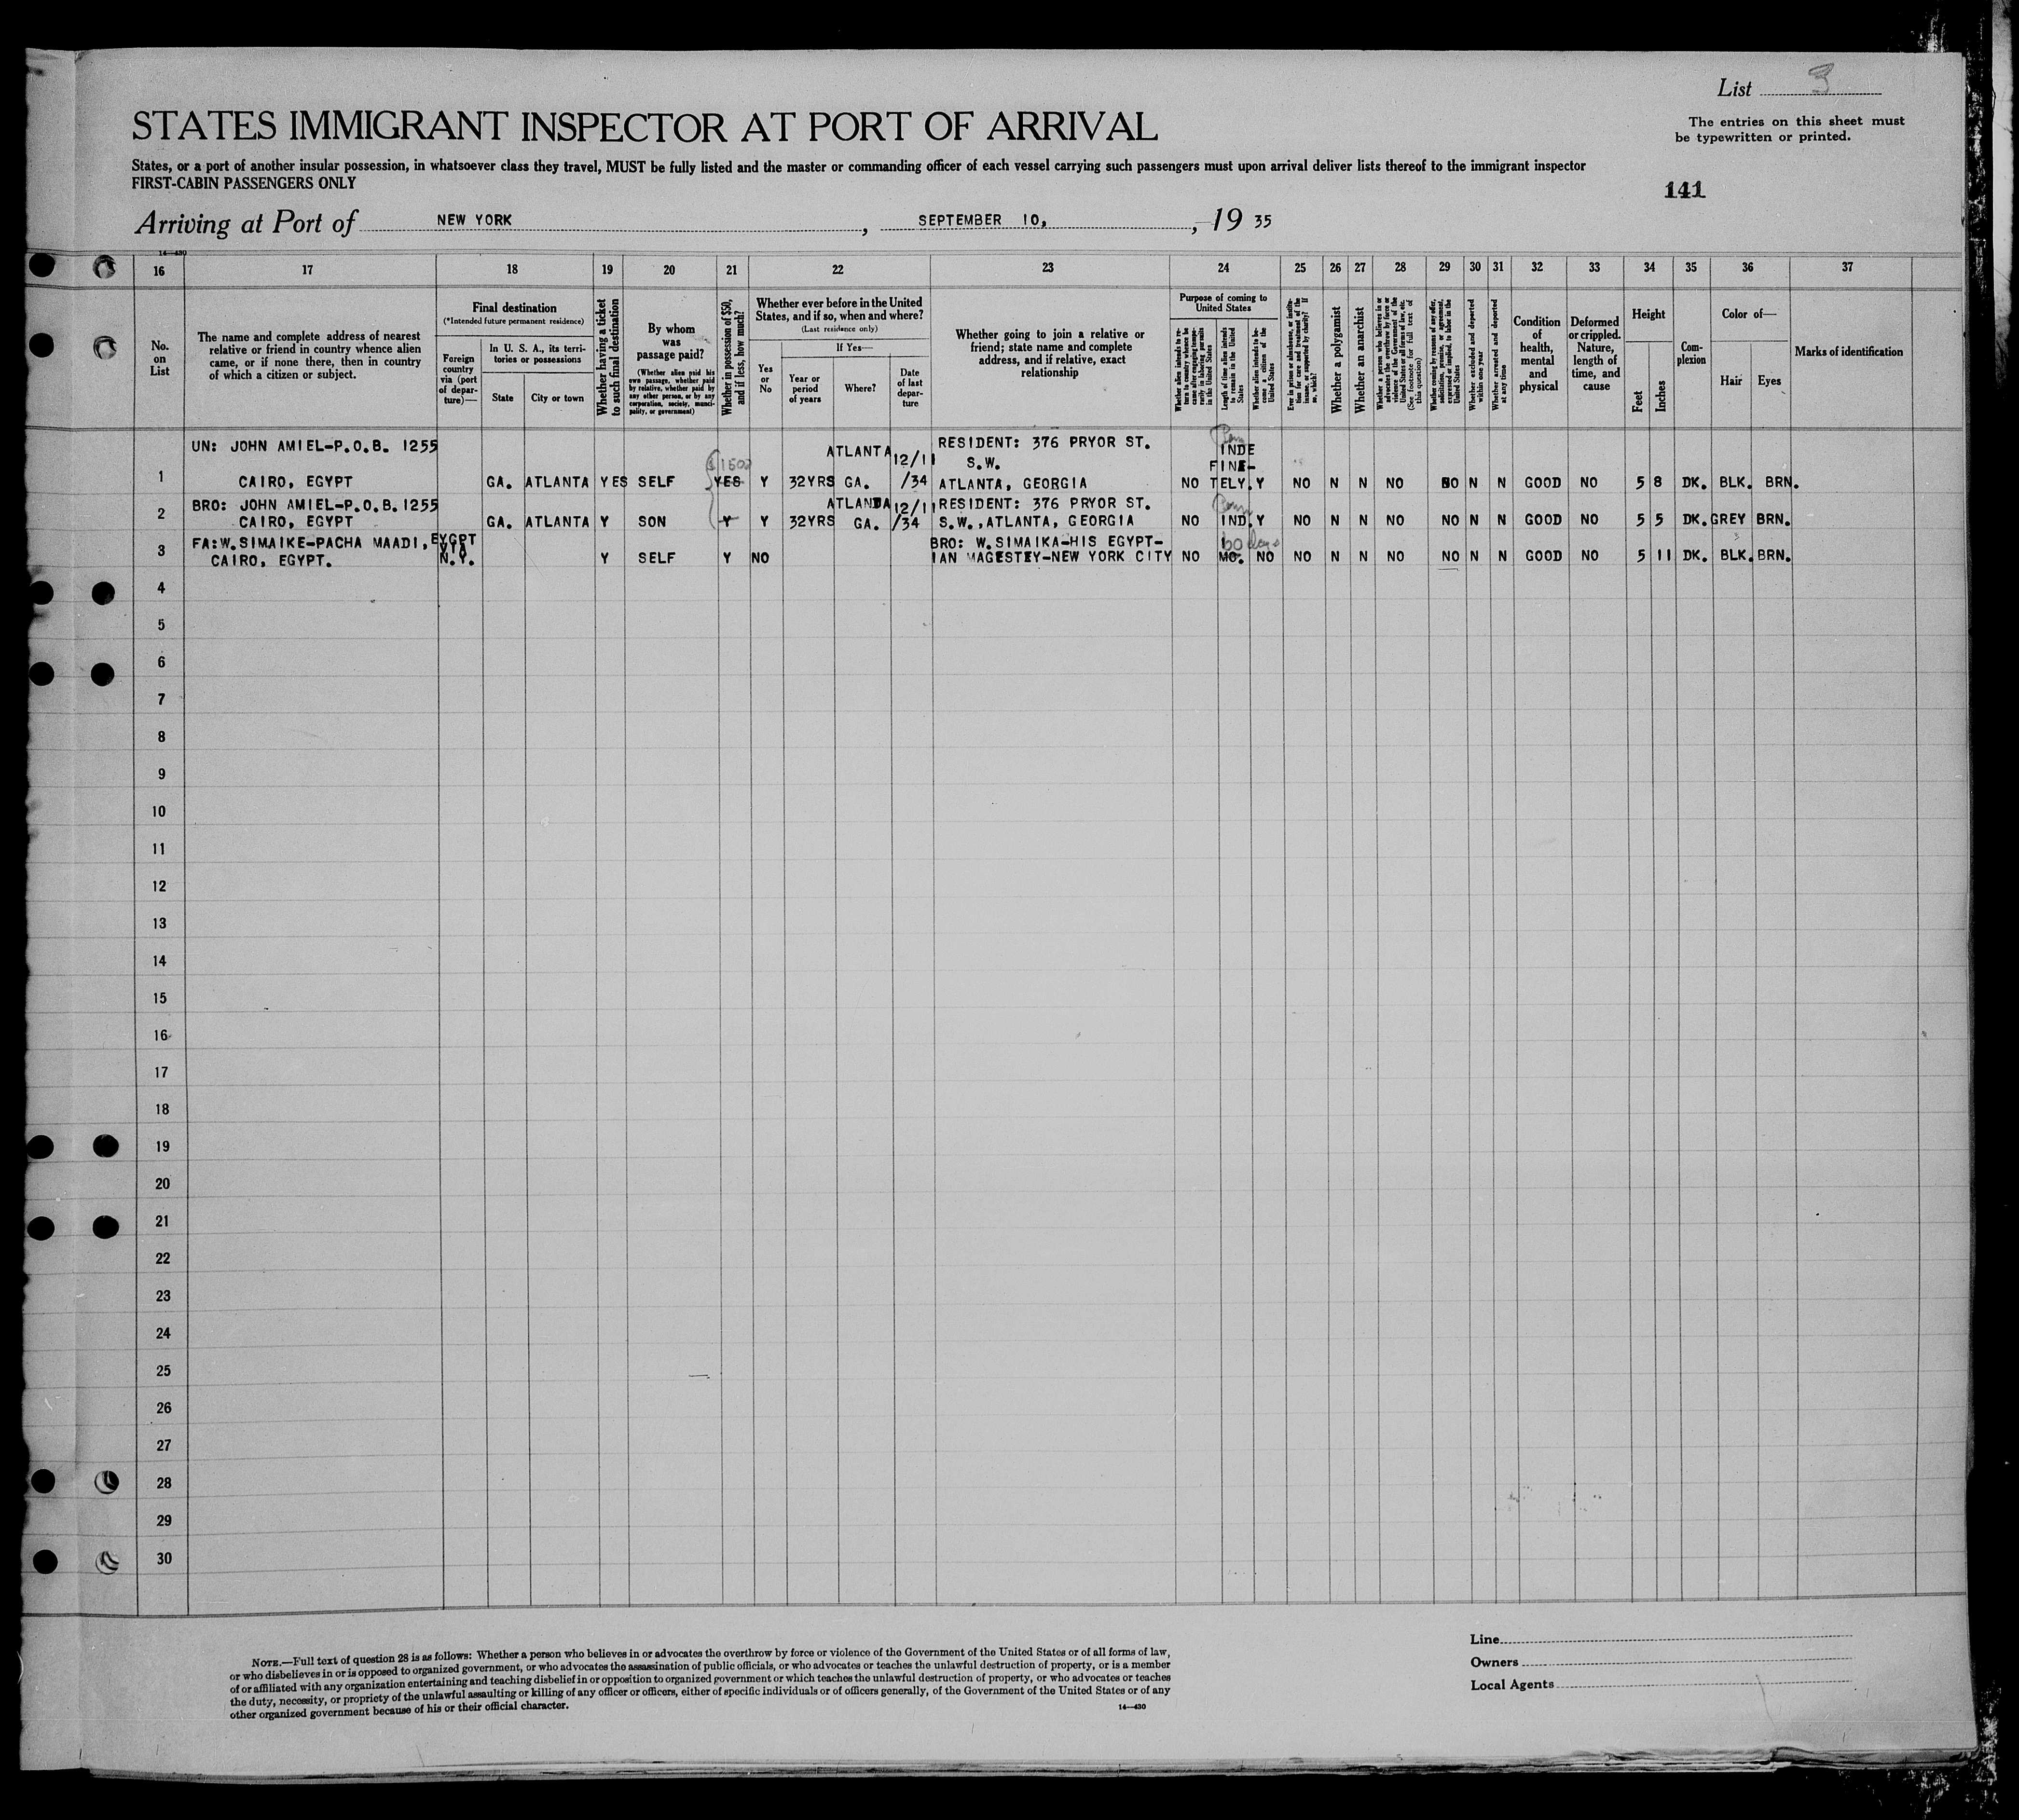 List 3
STATES IMMIGRANT INSPECTOR AT PORT OF ARRIVAL
The entries on this sheet must
be typewritten or printed.
States, or a port of another insular possession, in whatsoever class they travel, MUST be fully listed and the master or commanding officer of each vessel carrying such passengers must upon arrival deliver lists thereof to the immigrant inspector
FIRST-CABIN PASSENGERS ONLY
141
Arriving at Port of NEW YORK, SEPTEMBER 10, , 19 35
14—430
16 17 18 19 20 21 22 23 24 25 26 27 28 29 30 31 32 33 34 35 36 37
No.
on
List
The name and complete address of nearest
relative or friend in country whence alien
came, or if none there, then in country
of which a citizen or subject.
Final destination
(*Intended future permanent residence)
Foreign
country
via (port
of depar-
ture)—
In U. S. A., its terri-
tories or possessions
State
City or town
Whether having a ticket
to such final destination
By whom
was
passage paid?
(Whether alien paid his
own passage, whether paid
by relative, whether paid by
any other person, or by any
corporation, society, munici-
pality, or government)
Whether in possession of $50,
and if less, how much?
Whether ever before in the United
States, and if so, when and where?
(Last residence only)
Yes
or
No
If Yes—
Year or
period
of years
Where?
Date
of last
depar-
ture
Whether going to join a relative or
friend; state name and complete
address, and if relative, exact
relationship
Purpose of coming to
United States
Whether alien intends to re-
turn to country whence he
came after engaging tempo-
rarily in laboring pursuits
in the United States
Length of time alien intends
to remain in the United
States
Whether alien intends to be-
come a citizen of the
United States
Ever in prison or almshouse, or institu-
tion for care and treatment of the
insane, or supported by charity? If
so, which?
Whether a polygamist
Whether an anarchist
Whether a person who believes in or
advocates the overthrow by force or
violence of the Government of the
United States or all forms of law, etc.
(See footnote for full text of
this question)
Whether coming by reasons of any offer,
solicitation, promise, or agreement,
expressed or implied, to labor in the
United States
Whether excluded and deported
within one year
Whether arrested and deported
at any time
Condition
of
health,
mental
and
physical
Deformed
or crippled.
Nature,
length of
time, and
cause
Height
Feet
Inches
Com-
plexion
Color of—
Hair
Eyes
Marks of identification
UN: JOHN AMIEL-P.O.B. 1255 ATLANTA 12/11 RESIDENT: 376 PRYOR ST. INDE
$1500 S.W. FINE-
1 CAIRO, EGYPT GA. ATLANTA YES SELF YES Y 32YRS GA. /34 ATLANTA, GEORGIA NO TELY. Y NO N N NO NO N N GOOD NO 5 8 DK. BLK. BRN.
BRO: JOHN AMIEL-P.O.B. 1255 ATLANDA 12/11 RESIDENT: 376 PRYOR ST.
2 CAIRO, EGYPT GA. ATLANTA Y SON Y Y 32YRS GA. /34 S.W.,ATLANTA, GEORGIA NO IND. Y NO N N NO NO N N GOOD NO 5 5 DK. GREY BRN.
FA:W.SIMAIKE-PACHA MAADI, EYGPT VIA BRO: W.SIMAIKA-HIS EGYPT- 60 days
3 CAIRO, EGYPT. N.Y. Y SELF Y NO IAN MAGESTEY-NEW YORK CITY NO MO. NO NO N N NO NO N N GOOD NO 5 11 DK. BLK. BRN.
4
5
6
7
8
9
10
11
12
13
14
15
16
17
18
19
20
21
22
23
24
25
26
27
28
29
30
NOTE.—Full text of question 28 is as follows: Whether a person who believes in or advocates the overthrow by force or violence of the Government of the United States or of all forms of law,
or who disbelieves in or is opposed to organized government, or who advocates the assassination of public officials, or who advocates or teaches the unlawful destruction of property, or is a member
of or affiliated with any organization entertaining and teaching disbelief in or opposition to organized government or which teaches the unlawful destruction of property, or who advocates or teaches
the duty, necessity, or propriety of the unlawful assaulting or killing of any officer or officers, either of specific individuals or of officers generally, of the Government of the United States or of any
other organized government because of his or their official character.
14—430
Line
Owners
Local Agents